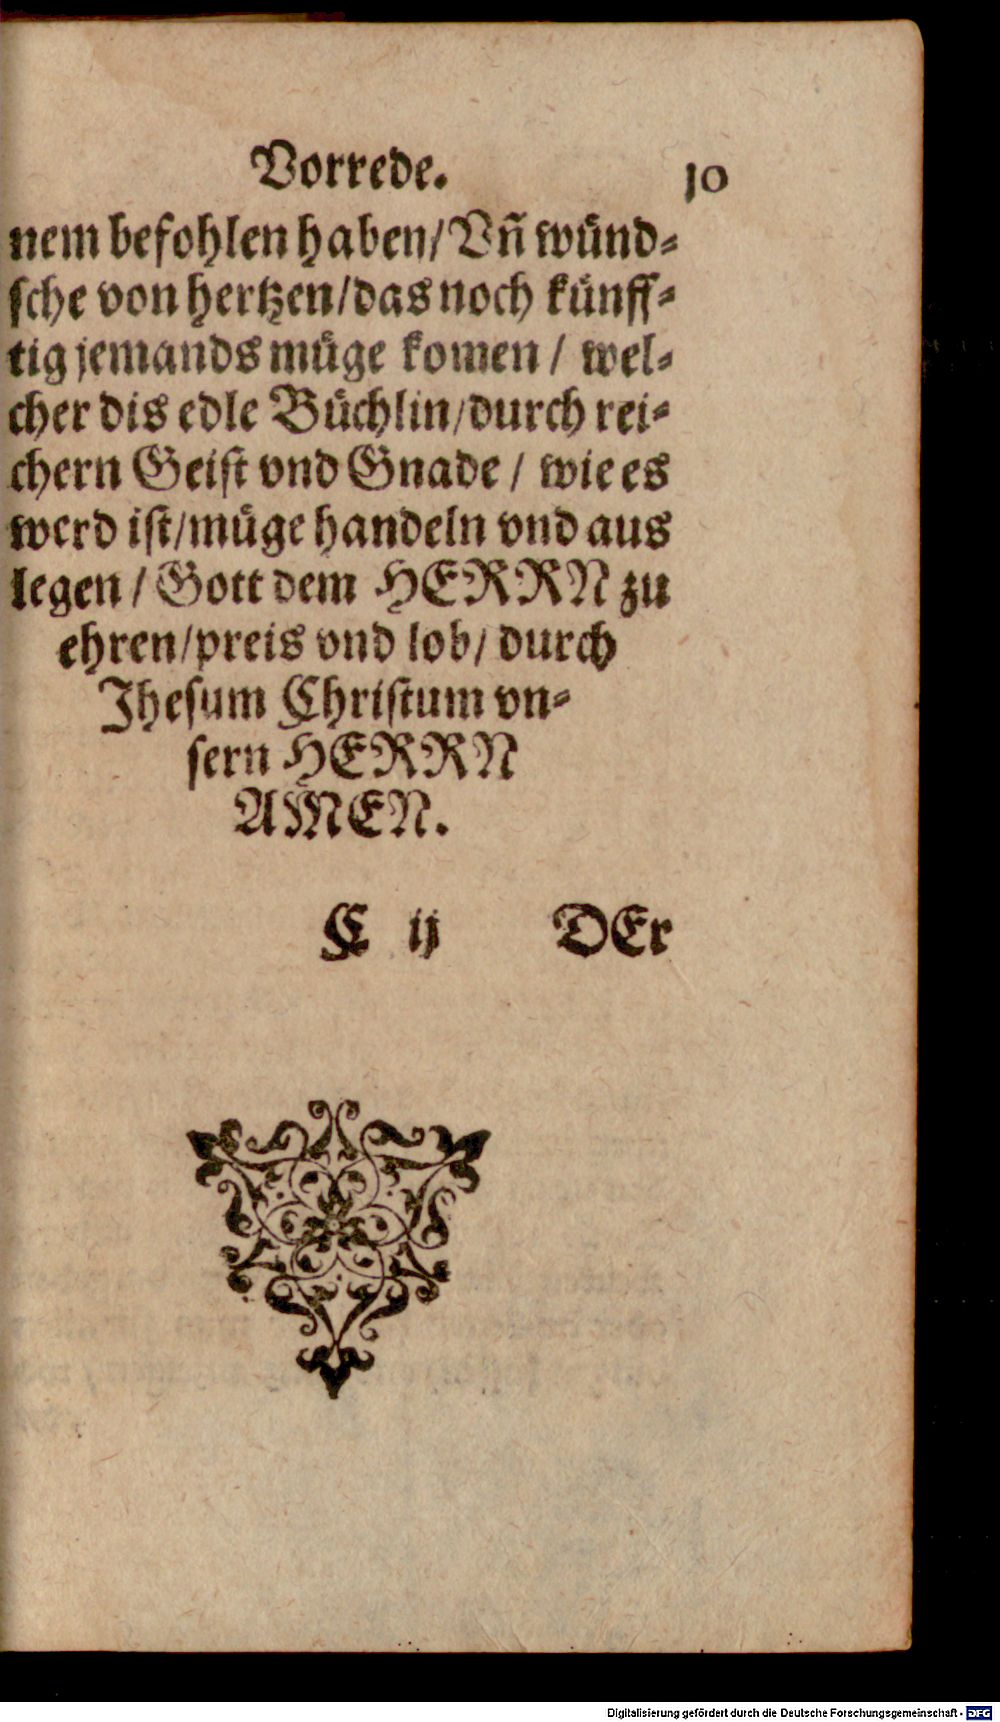 Vorrede. 10
nem befohlen haben/ Vñ wünd⸗
ſche von hertzen/ das noch künff⸗
tig jemands müge komen / wel⸗
cher dis edle Büchlin/ durch rei⸗
chern Geiſt vnd Gnade / wie es
werd iſt/ müge handeln vnd aus
legen / Gott dem HERRN zu
ehren/ preis vnd lob/ durch
Jheſum Chriſtum vn⸗
ſern HERRN
AMEN.
C ij DEr
Digitalisierung gefördert durch die Deutsche Forschungsgemeinschaft - DFG